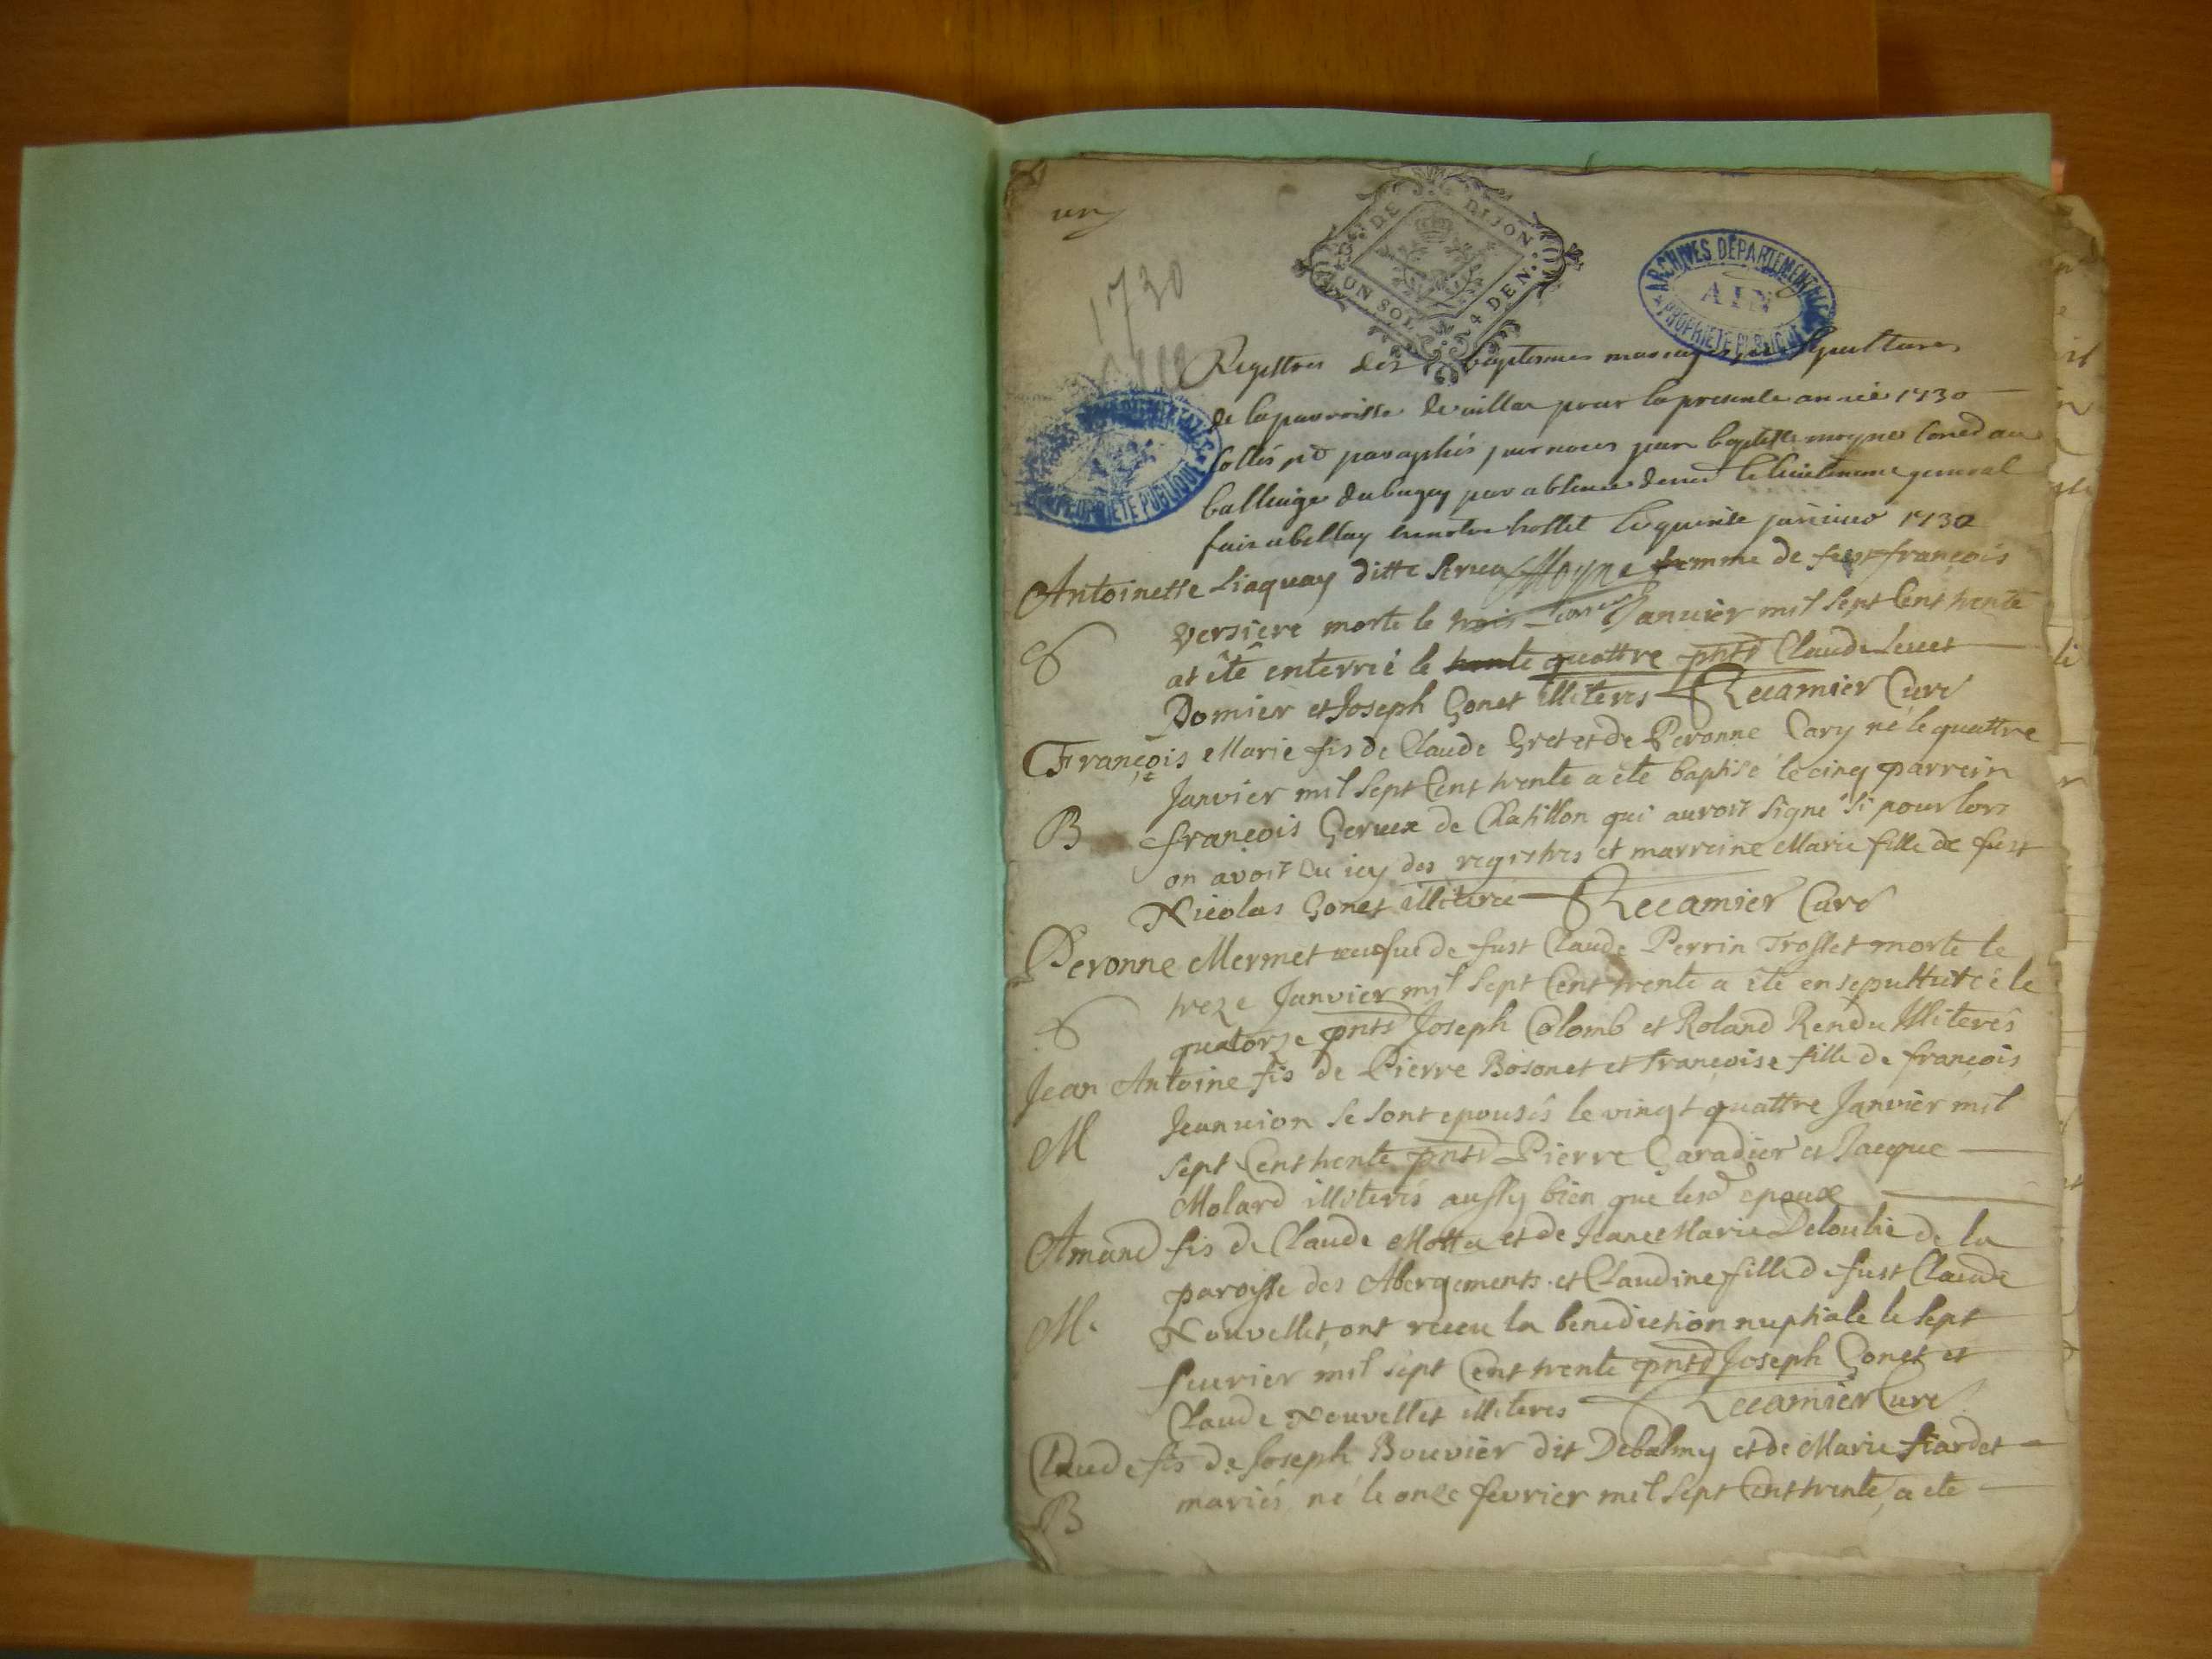 un
DE DIJON
UN SOL 4 DEN.
ARCHIVES DÉPARTEMENTALES
AIN
PROPRIÉTÉ PUBLIQUE
1730
Registres des baptesmes mariages sepultures
de la parroisse de villar pour la presente année 1730
cottés paraphés par nous jean baptiste moyne
balliage du bugey par absence le lieutenant general
fait a bellay hostel le janvier 1730
PROPRIÉTÉ PUBLIQUE
Antoinette ditte Moyne femme de françois
versiere morte le trois Janvier mil sept Cent trente
at été enterreé le trente quattre pnts Claude
Domier et Joseph Gonet illiteres Recamier Curé
François Marie fis de Claude Gret et de Peronne Cary né le quattre
Janvier mil sept Cent trente a été baptisé le cinq parrein
B françois de Chatillon qui auroit signé si pour lors
on avoit eu icy des registres et marreine Marie fille de fust
Nicolas Gonet illiteree Recamier Curé
Peronne Mermet veufue de fust Claude Perrin Trosset morte le
treze Janvier mil sept Cent trente a été ensepultureé le
S quatorze pnts Joseph Colomb et Roland Rendu Illiterés
Jean Antoine fis de Pierre Bosonet et françoise fille de françois
Jeannion se sont epousés le vingt quattre Janvier mil
M sept Cent trente pnts Pierre Caradier et Jacque
Molard illiterés aussy bien que lesd epoux
Amand fis de Claude Motta et de Jeane Marie Deloulie de la
paroisse des Abergements et Claudine fille de fust Claude
M. Nouvellet ont receu la benediction nuptiale le sept
feurier mil sept Cent trente pnts Joseph Gonet et
Claude Nouvellet illiteres Recamier Curé
Claude fis de Joseph Bouvier dit Debalmy et de Marie fiardet
B mariés né le onze fevrier mil sept Cent trente, a ete